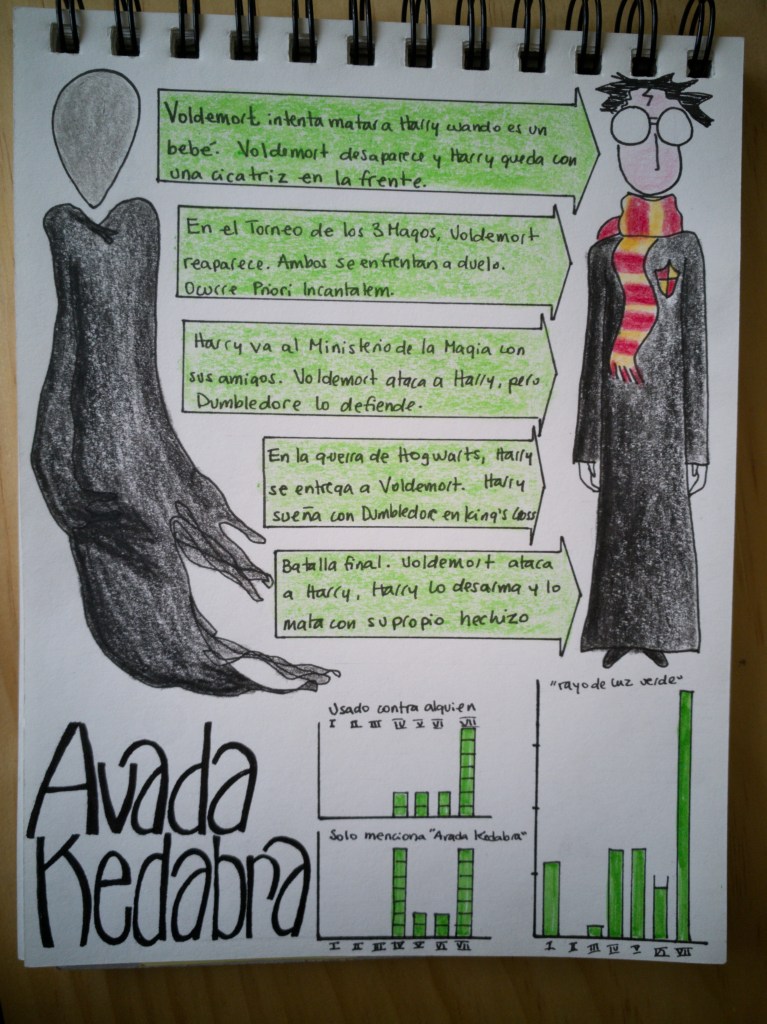 Voldemort intenta matar a Harry cuando es un
bebé. Voldemort desaparece y Harry queda con
una cicatriz en la frente.
En el Torneo de los 3 Magos, Voldemort
reaparece. Ambos se enfrentan a duelo.
Ocurre Priori Incantatem.
Harry va al Ministerio de la Magia con
sus amigos. Voldemort ataca a Harry, pero
Dumbledore lo defiende.
En la guerra de Hogwarts, Harry
se entrega a Voldemort. Harry
sueña con Dumbledore en King's Cross
Batalla final. Voldemort ataca
a Harry, Harry lo desarma y lo
mata con su propio hechizo
Avada
Kedabra
Usado contra alguien
I II III IV V VI VII
Solo menciona "Avada Kedabra"
I II III IV V VI VII
"rayo de luz verde"
I II III IV V VI VII